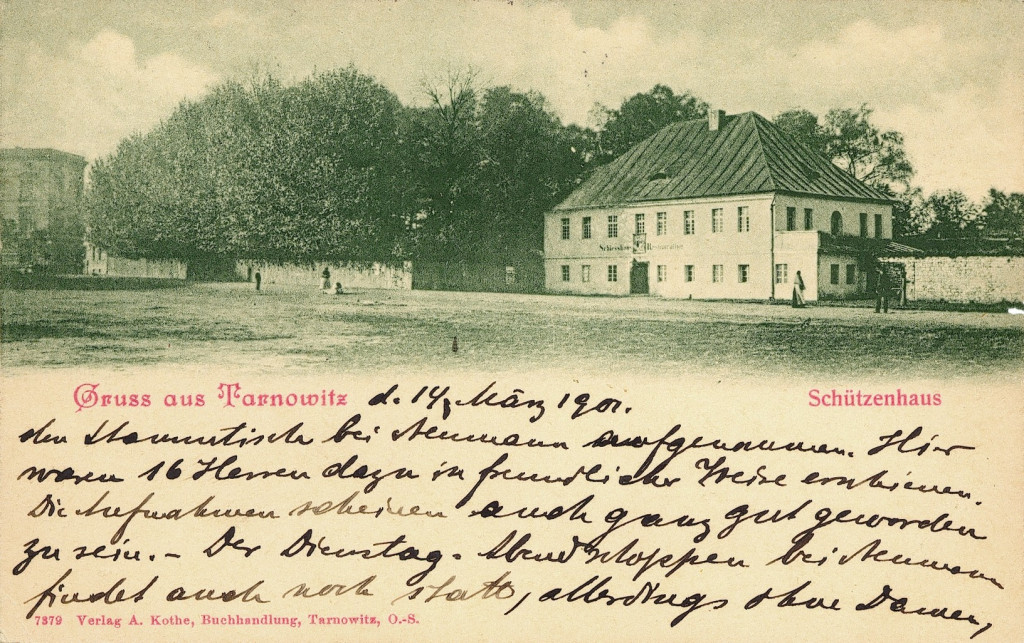 Schiesshaus Restauration
Gruss aus Tarnowitz d. 14. März 1901.
Schützenhaus
den Stammtisch bei Neumann aufgenommen. Hier
waren 16 Herren dazu in freundlicher Weise erschienen.
Die Aufnahmen scheinen auch ganz gut geworden
zu sein. – Der Dienstag-Abendschoppen bei Neumann
findet auch noch statt, allerdings ohne Damen,
7379 Verlag A. Kothe, Buchhandlung, Tarnowitz, O.-S.